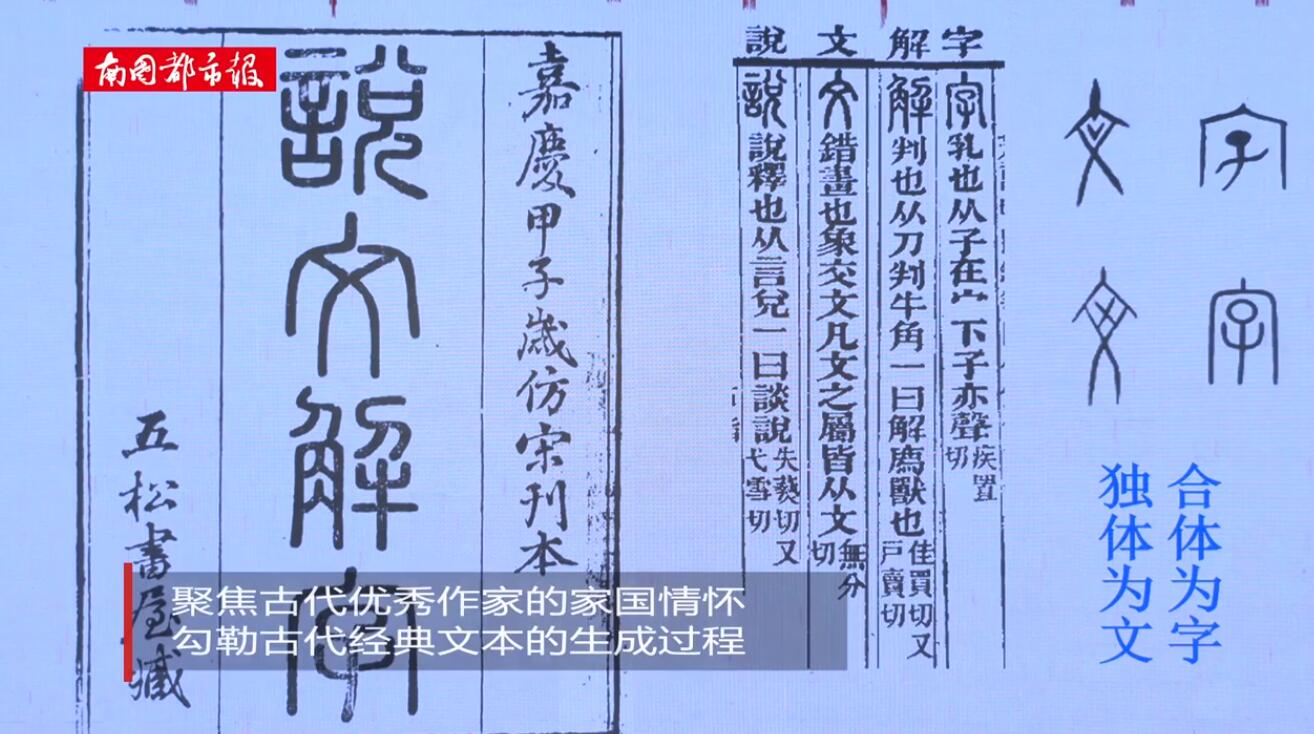 南国都市報
嘉慶甲子歲仿宋刊本
說文解字
五松書屋藏
說文解字
字乳也从子在宀下子亦聲疾置切
解判也从刀判牛角一曰解廌獸也佳買切又戶賣切
文錯畫也象交文凡文之屬皆从文無分切
說說釋也从言兌一曰談說失爇切又弋雪切
文 字
文 字
独体为文
合体为字
聚焦古代优秀作家的家国情怀
勾勒古代经典文本的生成过程